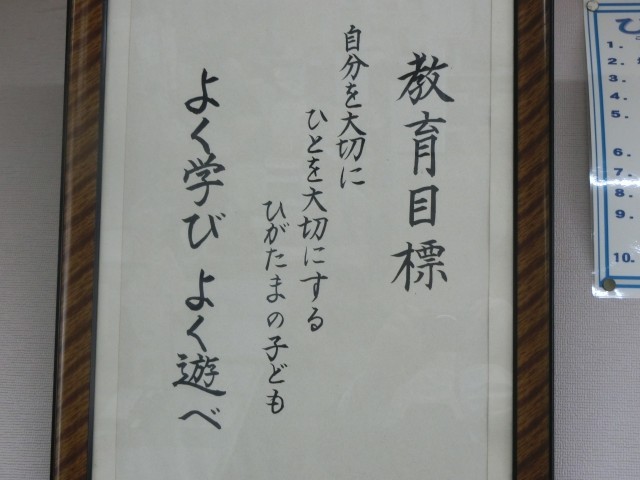 教育目標
自分を大切に
ひとを大切にする
ひがたまの子ども
よく学び よく遊べ
1.
2.
3.
4.
5.
6.
7.
8.
9.
10.